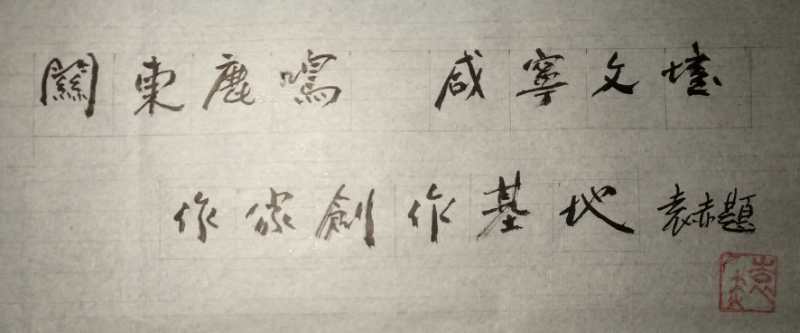 關東鹿鳴 咸寧文壇
作家創作基地 袁赤題